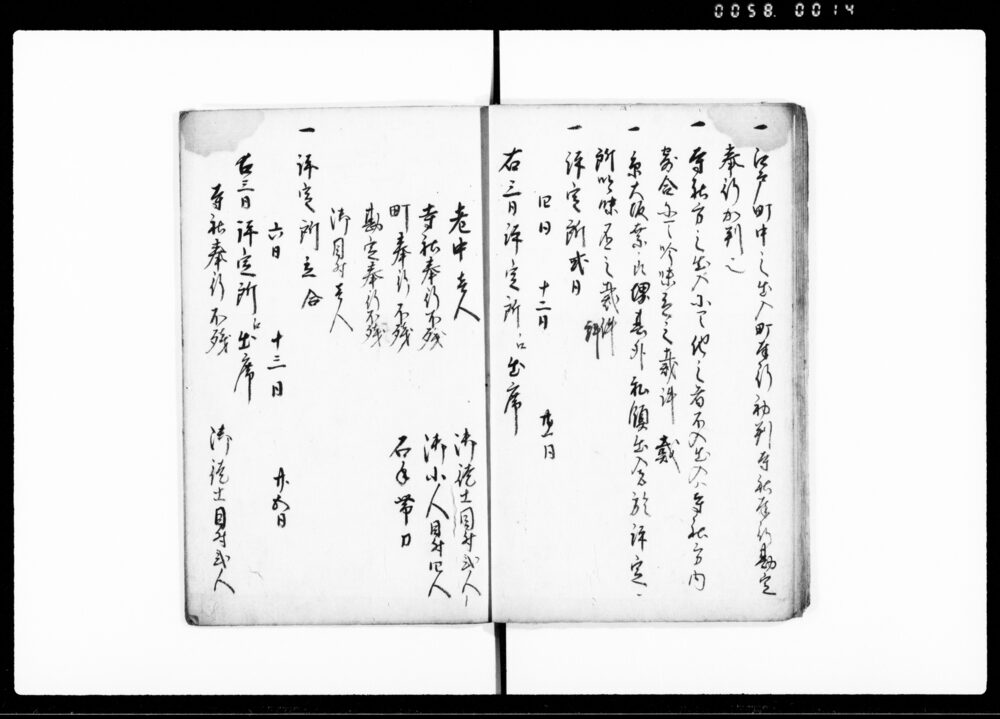 0058 0014
一 江戸町中之出入町奉行初判寺社奉行勘定
奉行加判之
一 寺社方之出入ニ而他之者不入出入ハ寺社方内
寄合ニ而吟味有之裁許
一 京大坂奈良堺其外私領出入有於評定
所吟味有之裁許
裁許
一 評定所式日
四日 十二日 廿一日
右三日評定所江出席
老中壱人 御徒士目付弐人
寺社奉行不残 御小人目付四人
町奉行不残 石手帯刀
勘定奉行不残
御目付壱人
一 評定所立合
六日 十三日 廿五日
右三日評定所江出席
寺社奉行不残 御徒士目付弐人